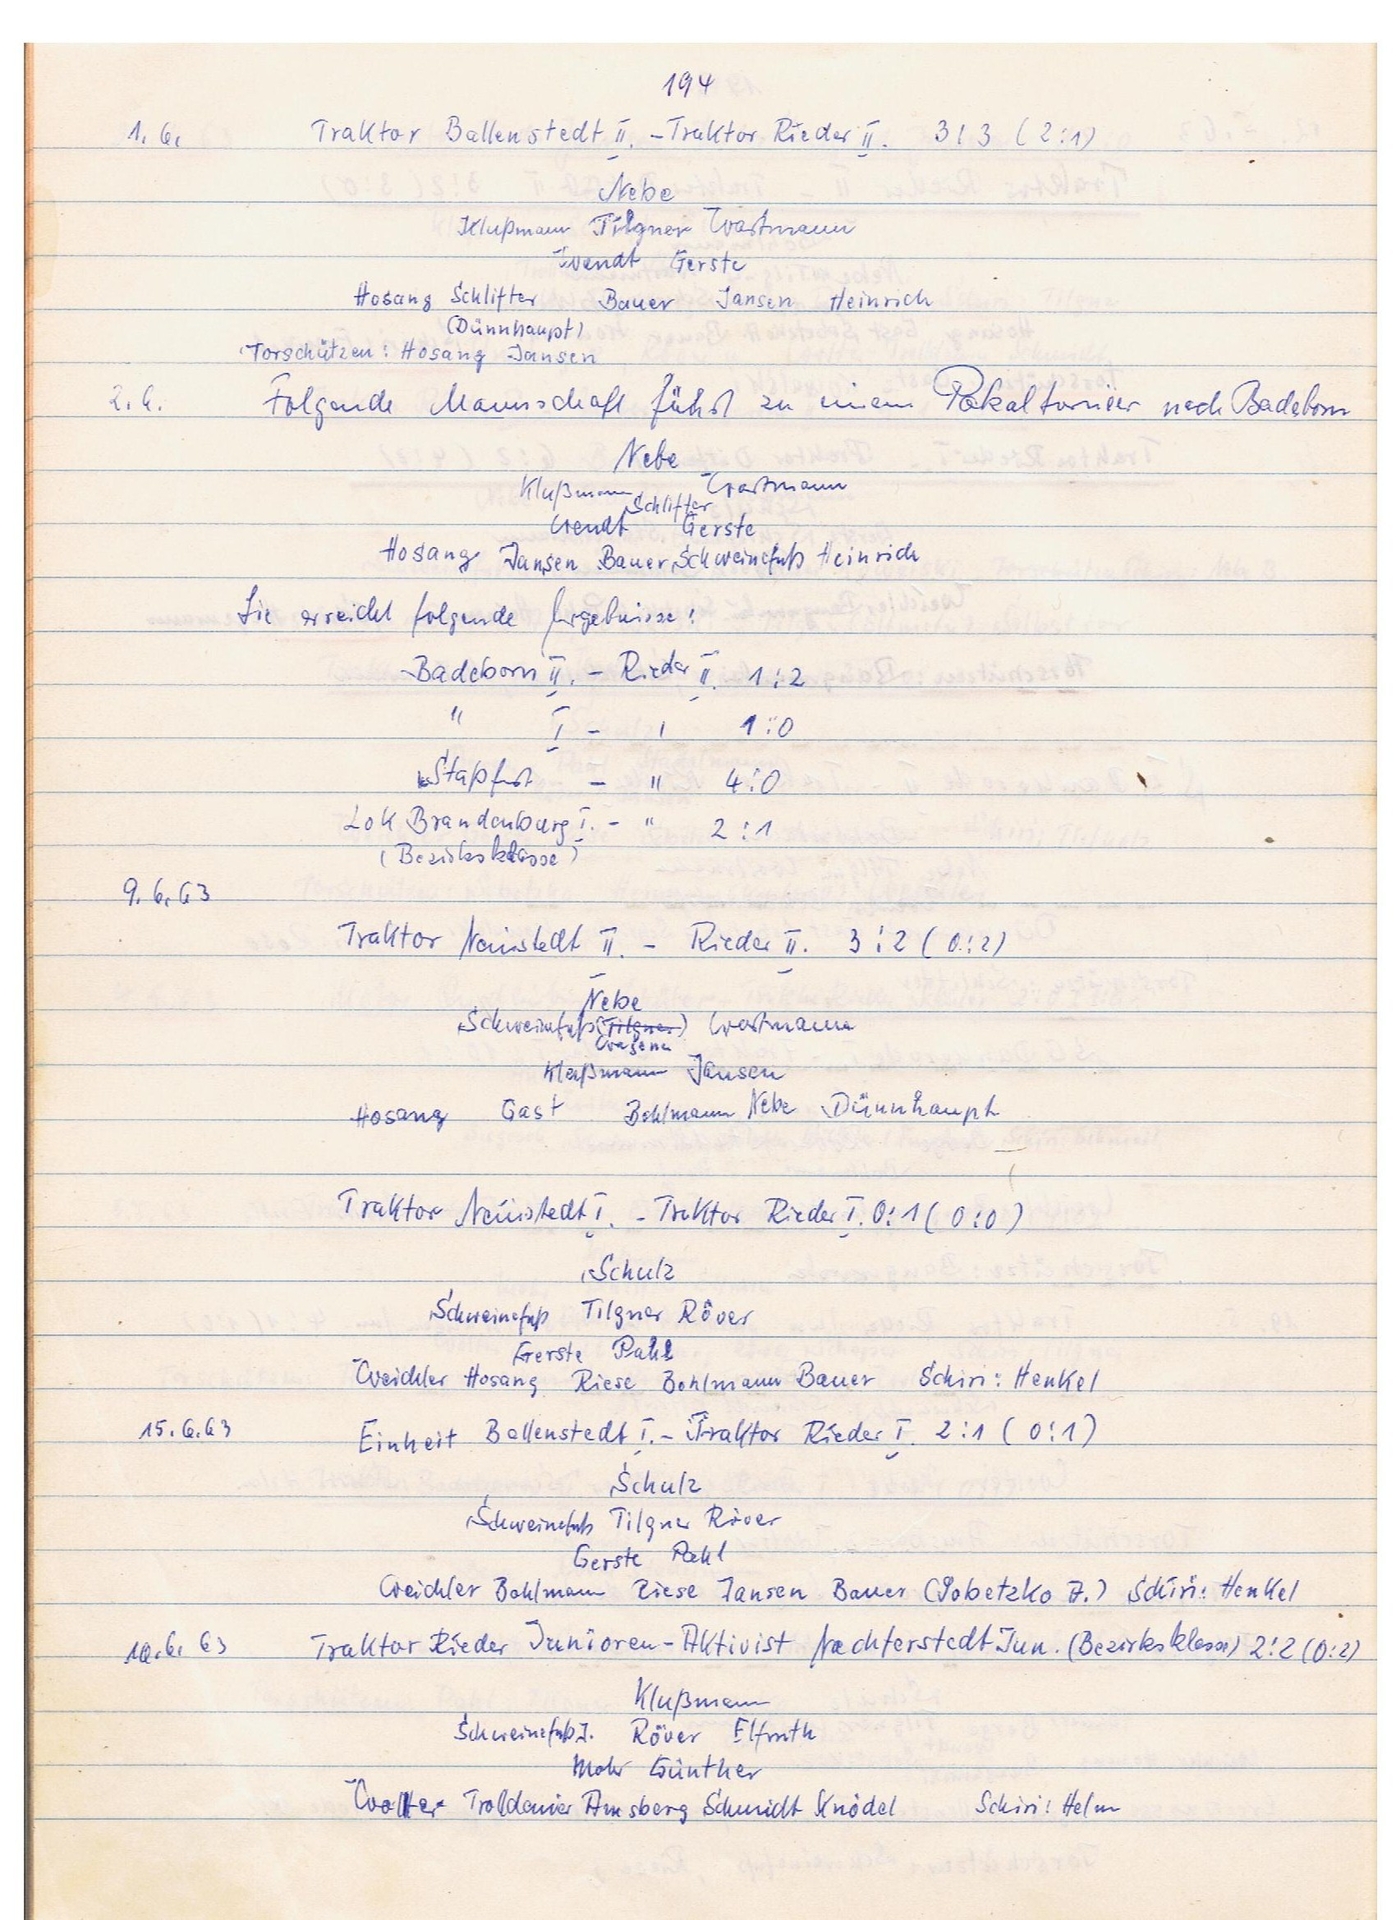 194
1. 6. Traktor Ballenstedt II. - Traktor Rieder II. 3:3 (2:1)
Nebe
Klußmann Tilgner Wartmann
Wendt Gerste
Hosang Schlifter Bauer Jansen Heinrich
(Dünnhaupt)
Torschützen: Hosang Jansen
2. 6. Folgende Mannschaft fährt zu einem Pokalturnier nach Badeborn
Nebe
Klußmann Wartmann
Schlifter
Wendt Gerste
Hosang Jansen Bauer Schweinefuß Heinrich
Sie erreicht folgende Ergebnisse:
Badeborn II. - Rieder II. 1:2
" I - " 1:0
Staßfurt - " 4:0
Lok Brandenburg I. - " 2:1
(Bezirksklasse)
9. 6. 63
Traktor Neinstedt II. - Rieder II. 3:2 (0:2)
Nebe
Schweinefuß (Tilgner) Wartmann
Klußmann Jansen
Hosang Gast Bohlmann Nebe Dünnhaupt
Traktor Neinstedt I. - Traktor Rieder I. 0:1 (0:0)
Schulz
Schweinefuß Tilgner Röver
Gerste Pahl
Weichler Hosang Riese Bohlmann Bauer Schiri: Henkel
15. 6. 63 Einheit Ballenstedt I. - Traktor Rieder I. 2:1 (0:1)
Schulz
Schweinefuß Tilgner Röver
Gerste Pahl
Weichler Bohlmann Riese Jansen Bauer (Sobetzko J.) Schiri: Henkel
6. 63 Traktor Rieder Junioren - Aktivist Nachterstedt Jun. (Bezirksklasse) 2:2 (0:2)
Klußmann
Schweinefuß J. Röver Elfruth
Mohr Günther
Walter Amsberg Schmidt Knödel Schiri: Helm